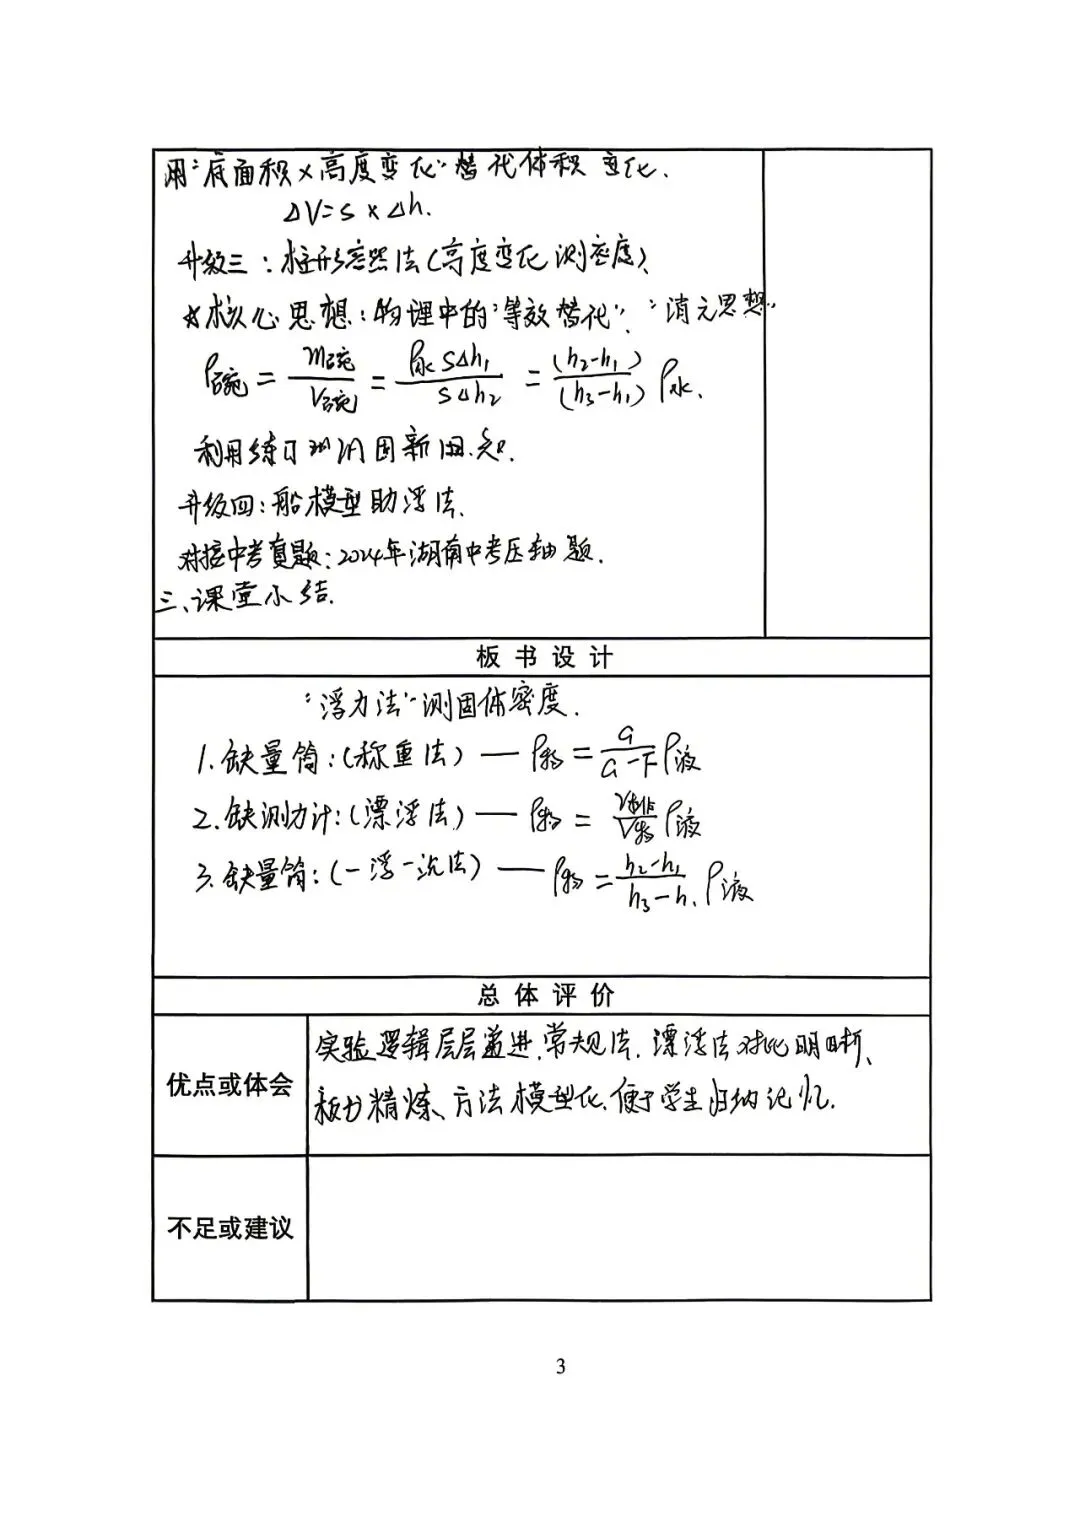 用“底面积×高度变化”替代体积变化.
ΔV=S×Δh.
升级三:柱形容器法(高度变化测密度)
☆核心思想:物理中的“等效替代”.“消元思想”
ρ碗 = m碗/V碗 = ρ水SΔh₁/SΔh₂ = (h₂-h₁)/(h₃-h₁) ρ水.
利用练习巩固新旧知.
升级四:船模型助浮法.
对接中考真题:2024年湖南中考压轴题.
三、课堂小结.
板书设计
“浮力法”测固体密度.
1.缺量筒:(称重法)— ρ物 = G/(G-F) ρ液
2.缺测力计:(漂浮法)— ρ物 = V排/V物 ρ液
3.缺量筒:(一浮一沉法)— ρ物 = (h₂-h₁)/(h₃-h₁) ρ液
总体评价
优点或体会
实验逻辑层层递进.常规法.漂浮法对比明晰、
板书精炼、方法模型化.便于学生归纳记忆.
不足或建议
3